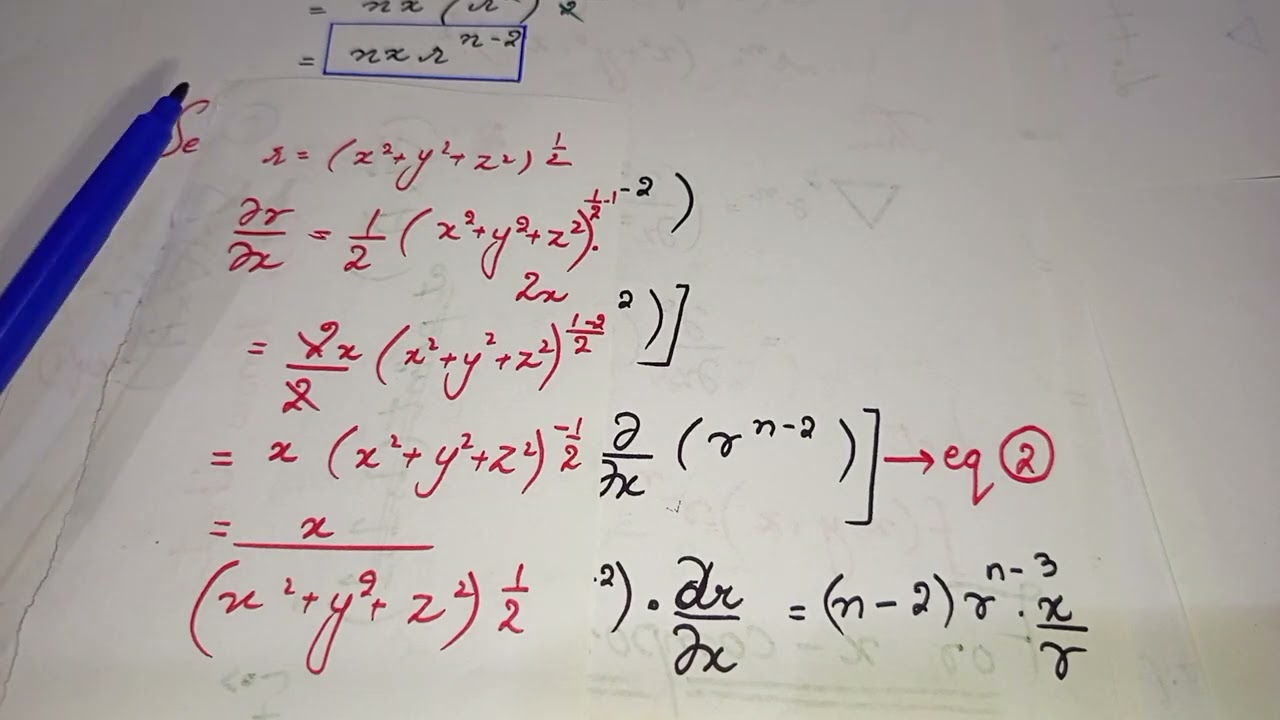 = nx (r
= nx r^{n-2}
r = (x²+y²+z²)^{1/2}
∂r/∂x = 1/2 (x²+y²+z²)^{1/2-1} . -2 )
2x
= 2x/2 (x²+y²+z²)^{(1-2)/2} 2 ) ]
= x (x²+y²+z²)^{-1/2} ∂/∂x (r^{n-2}) ] → eq ②
= x / (x²+y²+z²)^{1/2}
2) . ∂r/∂x = (n-2) r^{n-3} . x/r